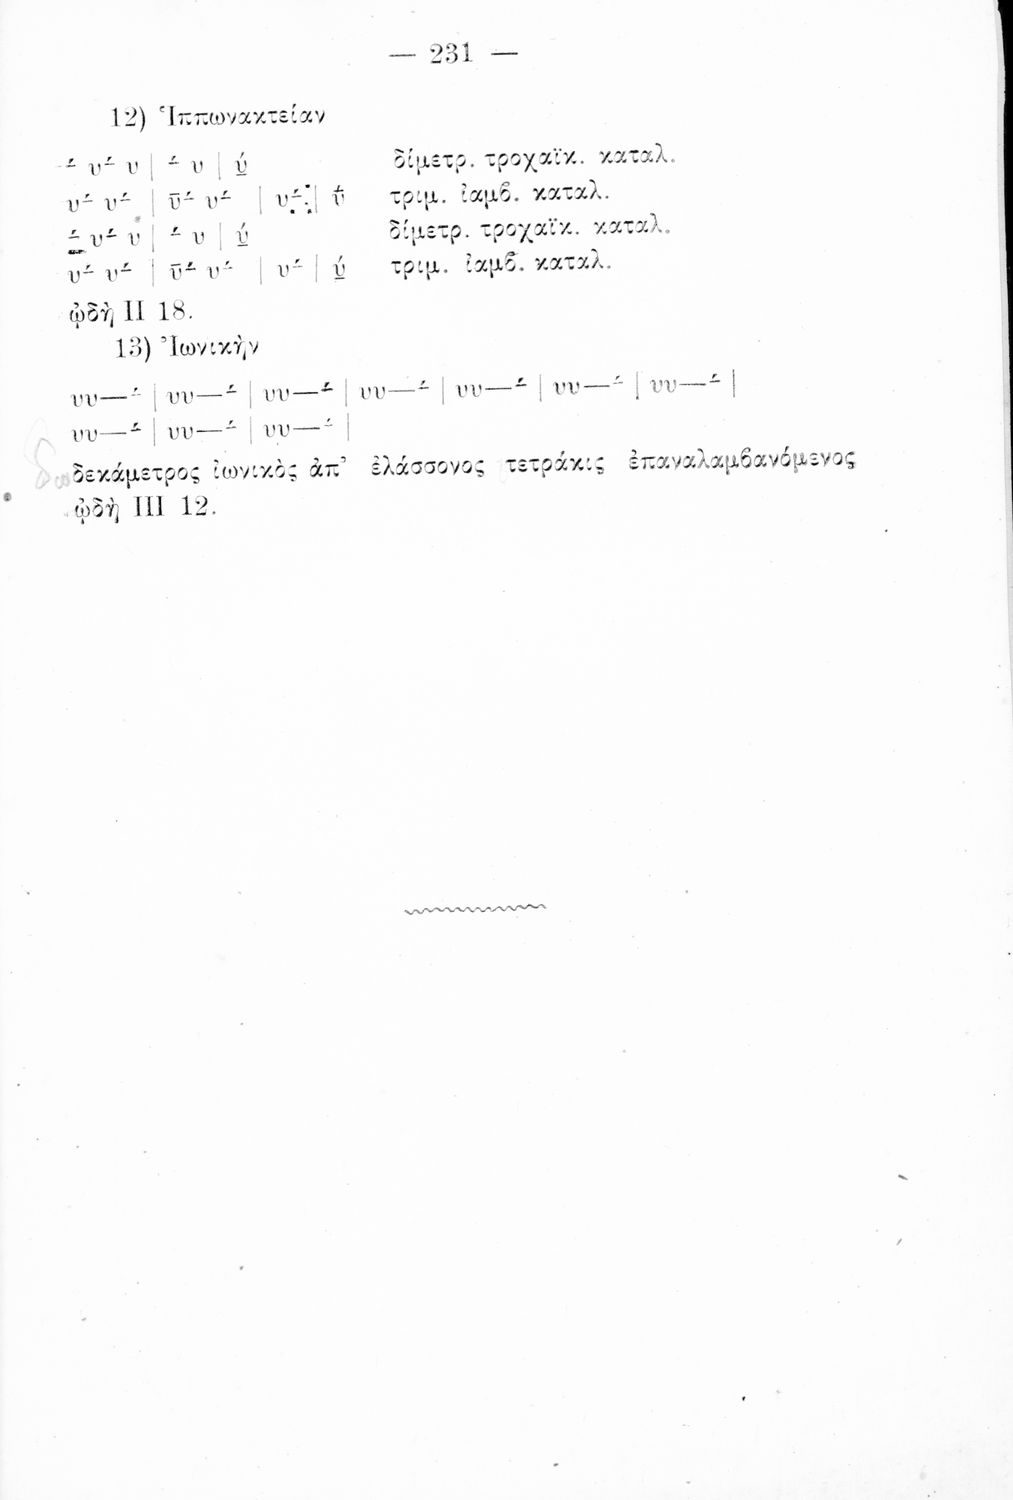 — 231 —
12) Ἱππωνακτείαν
–́ υ–́ υ | –́ υ | ύ̲ δίμετρ. τροχαϊκ. καταλ.
υ–́ υ–́ | ῡ–́ υ–́ | υ–́ | ῡ́ τριμ. ἰαμβ. καταλ.
–́ υ–́ υ | –́ υ | ύ̲ δίμετρ. τροχαϊκ. καταλ.
υ–́ υ–́ | ῡ–́ υ–́ | υ–́ | ύ̲ τριμ. ἰαμβ. καταλ.
ᾠδὴ II 18.
13) Ἰωνικὴν
υυ—–́ | υυ—–́ | υυ—–́ | υυ—–́ | υυ—–́ | υυ—–́ | υυ—–́ |
υυ—–́ | υυ—–́ | υυ—–́ |
δεκάμετρος ἰωνικὸς ἀπ’ ἐλάσσονος τετράκις ἐπαναλαμβανόμενος
ᾠδὴ III 12.